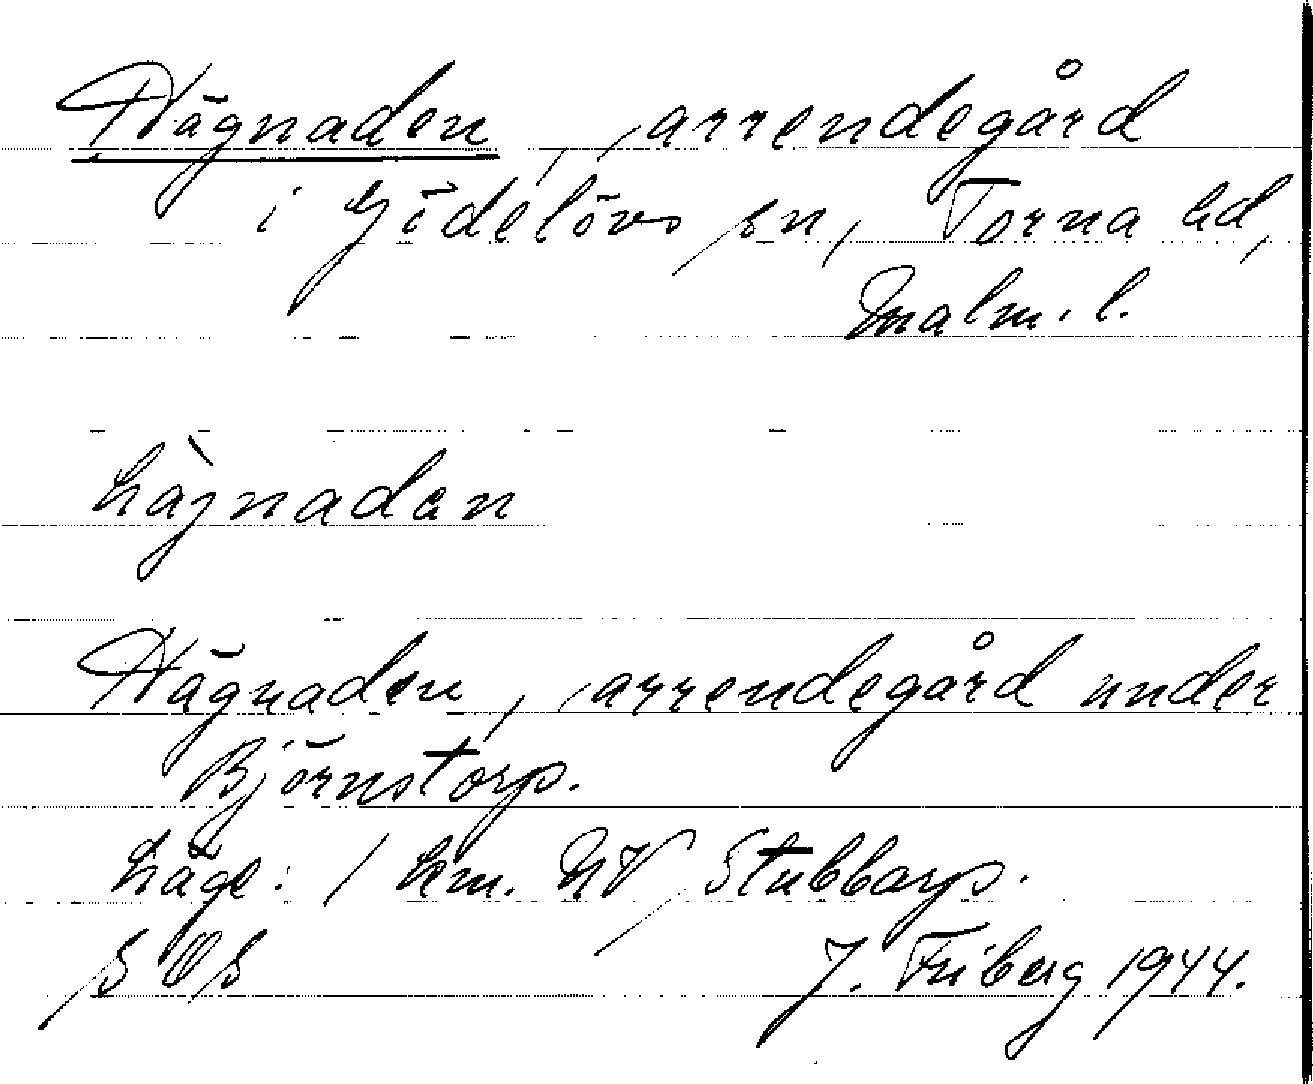 Hägnaden, arrendegård
i Gödelövs sn, Torna hd,
Malm. l.
hàjnadan
Hägnaden, arrendegård under
Björnstorp.
Läge: 1 km. NV Stubbarp.
S O S J. Friberg 1944.